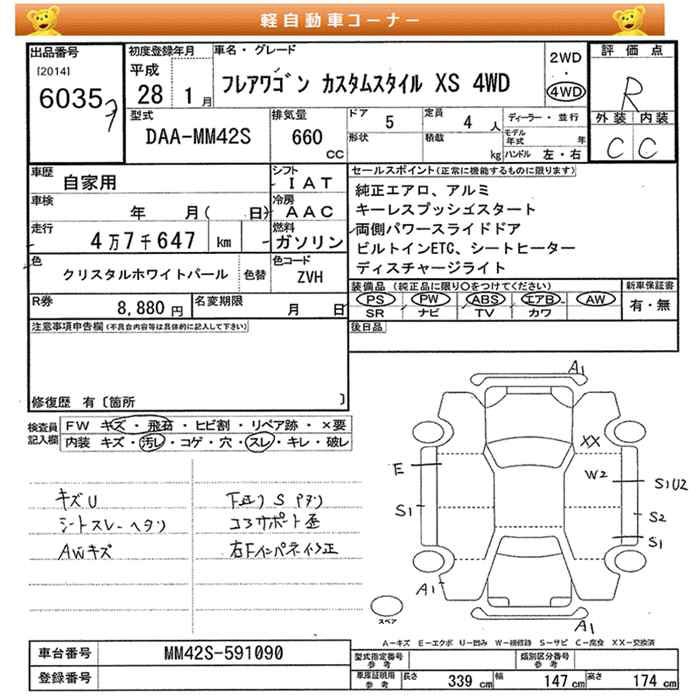 軽自動車コーナー
出品番号
[2014]
6035
初度登録年月
平成
28 1月
車名・グレード
フレアワゴン カスタムスタイル XS 4WD
2WD
・
4WD
評価点
R
外装 内装
C C
型式
DAA-MM42S
排気量
660
CC
ドア 5
定員 4 人
形状
積載 kg
ディーラー・並行
モデル年式 年
ハンドル 左・右
車歴
自家用
車検
年 月( 日)
走行
4万7千647 km
色
クリスタルホワイトパール
色替
R券
8,880 円
名変期限
月 日
シフト
IAT
冷房
AAC
燃料
ガソリン
色コード
ZVH
セールスポイント(正常に機能するものに限ります)
純正エアロ、アルミ
キーレスプッシュスタート
両側パワースライドドア
ビルトインETC、シートヒーター
ディスチャージライト
装備品(純正品に限り○をつけてください)
PS PW ABS エアB AW
SR ナビ TV カワ
新車保証書
有・無
後日品
注意事項申告欄(不具合内容等は具体的に記入して下さい)
修復歴 有〔箇所 〕
検査員記入欄
FW キズ・飛石・ヒビ割・リペア跡・×要
内装 キズ・汚レ・コゲ・穴・スレ・キレ・破レ
キズU
シートスレーヘタリ
AWキズ
コアサポート歪
A1
XX
E
W2
S1U2
S1
S2
S1
A1
A1
スペア
A－キズ E－エクボ U－凹み W－補修跡 S－サビ C－腐食 XX－交換済
車台番号
MM42S-591090
登録番号
型式指定番号
参考
類別区分番号
参考
車庫証明用
参考
長さ 339 cm
幅 147 cm
高さ 174 cm